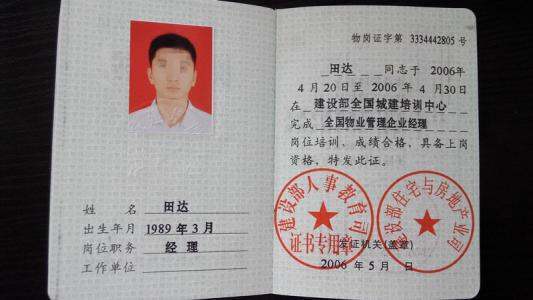 姓名 田达
出生年月 1989年3月
岗位职务 经理
工作单位
物岗证字第 3334442805 号
田达 同志于 2006年
4月20日至 2006年 4月30日
在 建设部全国城建培训中心
完成 全国物业管理企业经理
岗位培训，成绩合格，具备上岗
资格，特发此证。
建设部人事教育司
证书专用章
建设部住宅与房地产业司
发证机关(盖章)
2006 年 5 月 日